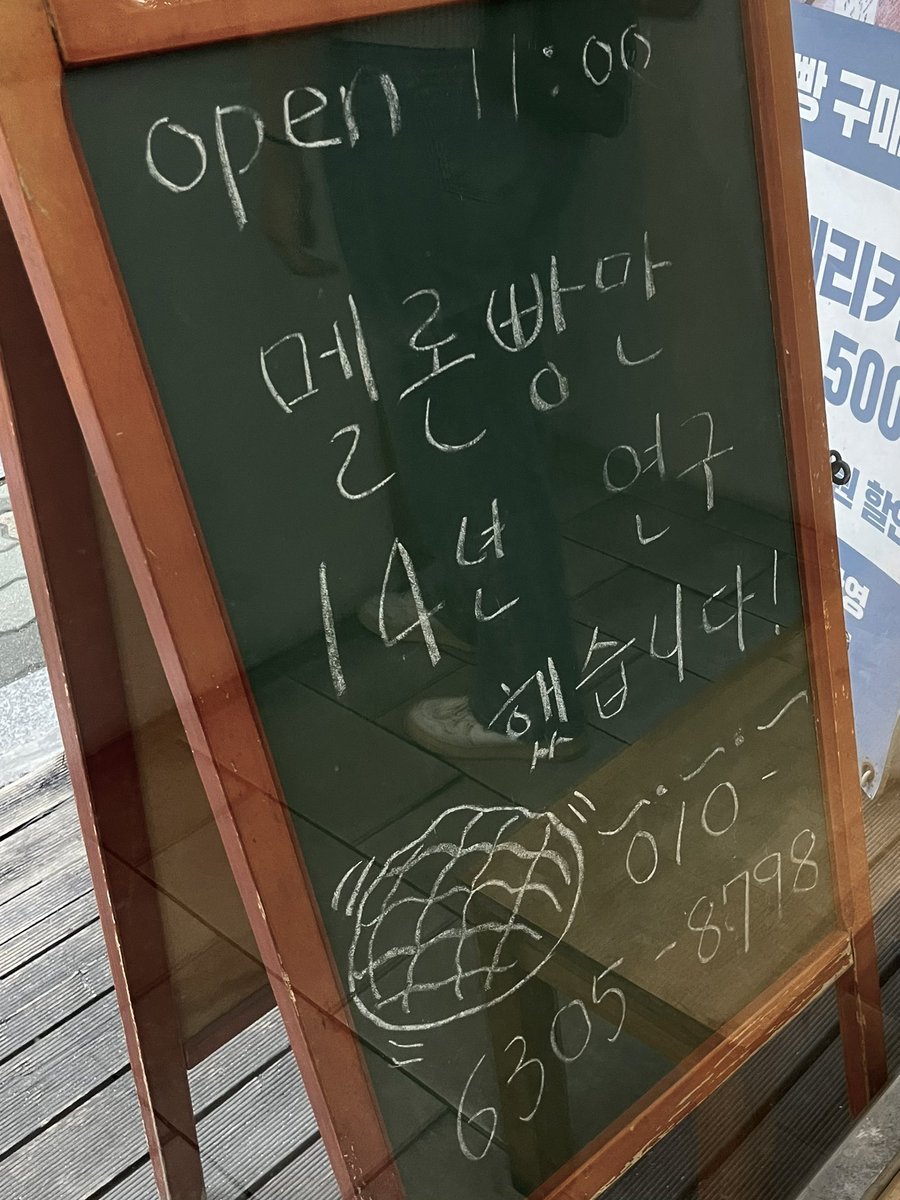 open 11:00
멜론빵만
14년 연구
했습니다!
010-
6305-8798
빵 구매
리카
500
원 할인
영